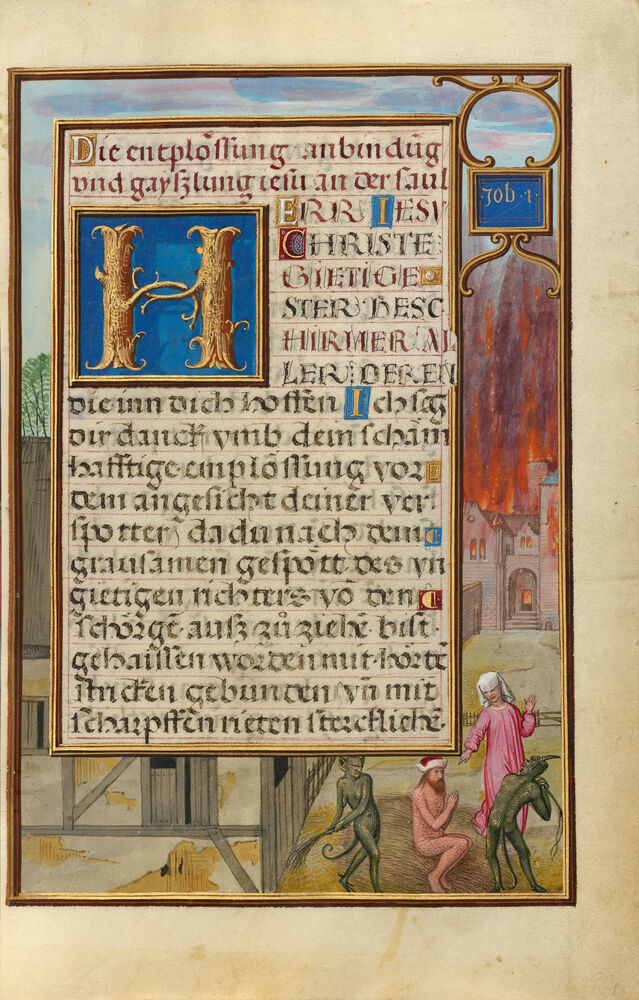 Die entplössung anbindūg
vnd gayszlung iesu an der saul
HERR IESV
CHRISTE
GIETIGE
STER BESC
HIRMER AL
LER DEREN
die inn dich hoffen Ich sag
dir danck vmb dein schām
hafftige emplössung vor
dem angesicht deiner ver
spotter da du nach dem
grausamen gespött des vn
gietigen richters vō den
schörgē ausz zů ziehē bist
gehaissen worden mit hörtē
stricken gebunden vn̄ mit
scharpffen rieten sterckliche
Job 1